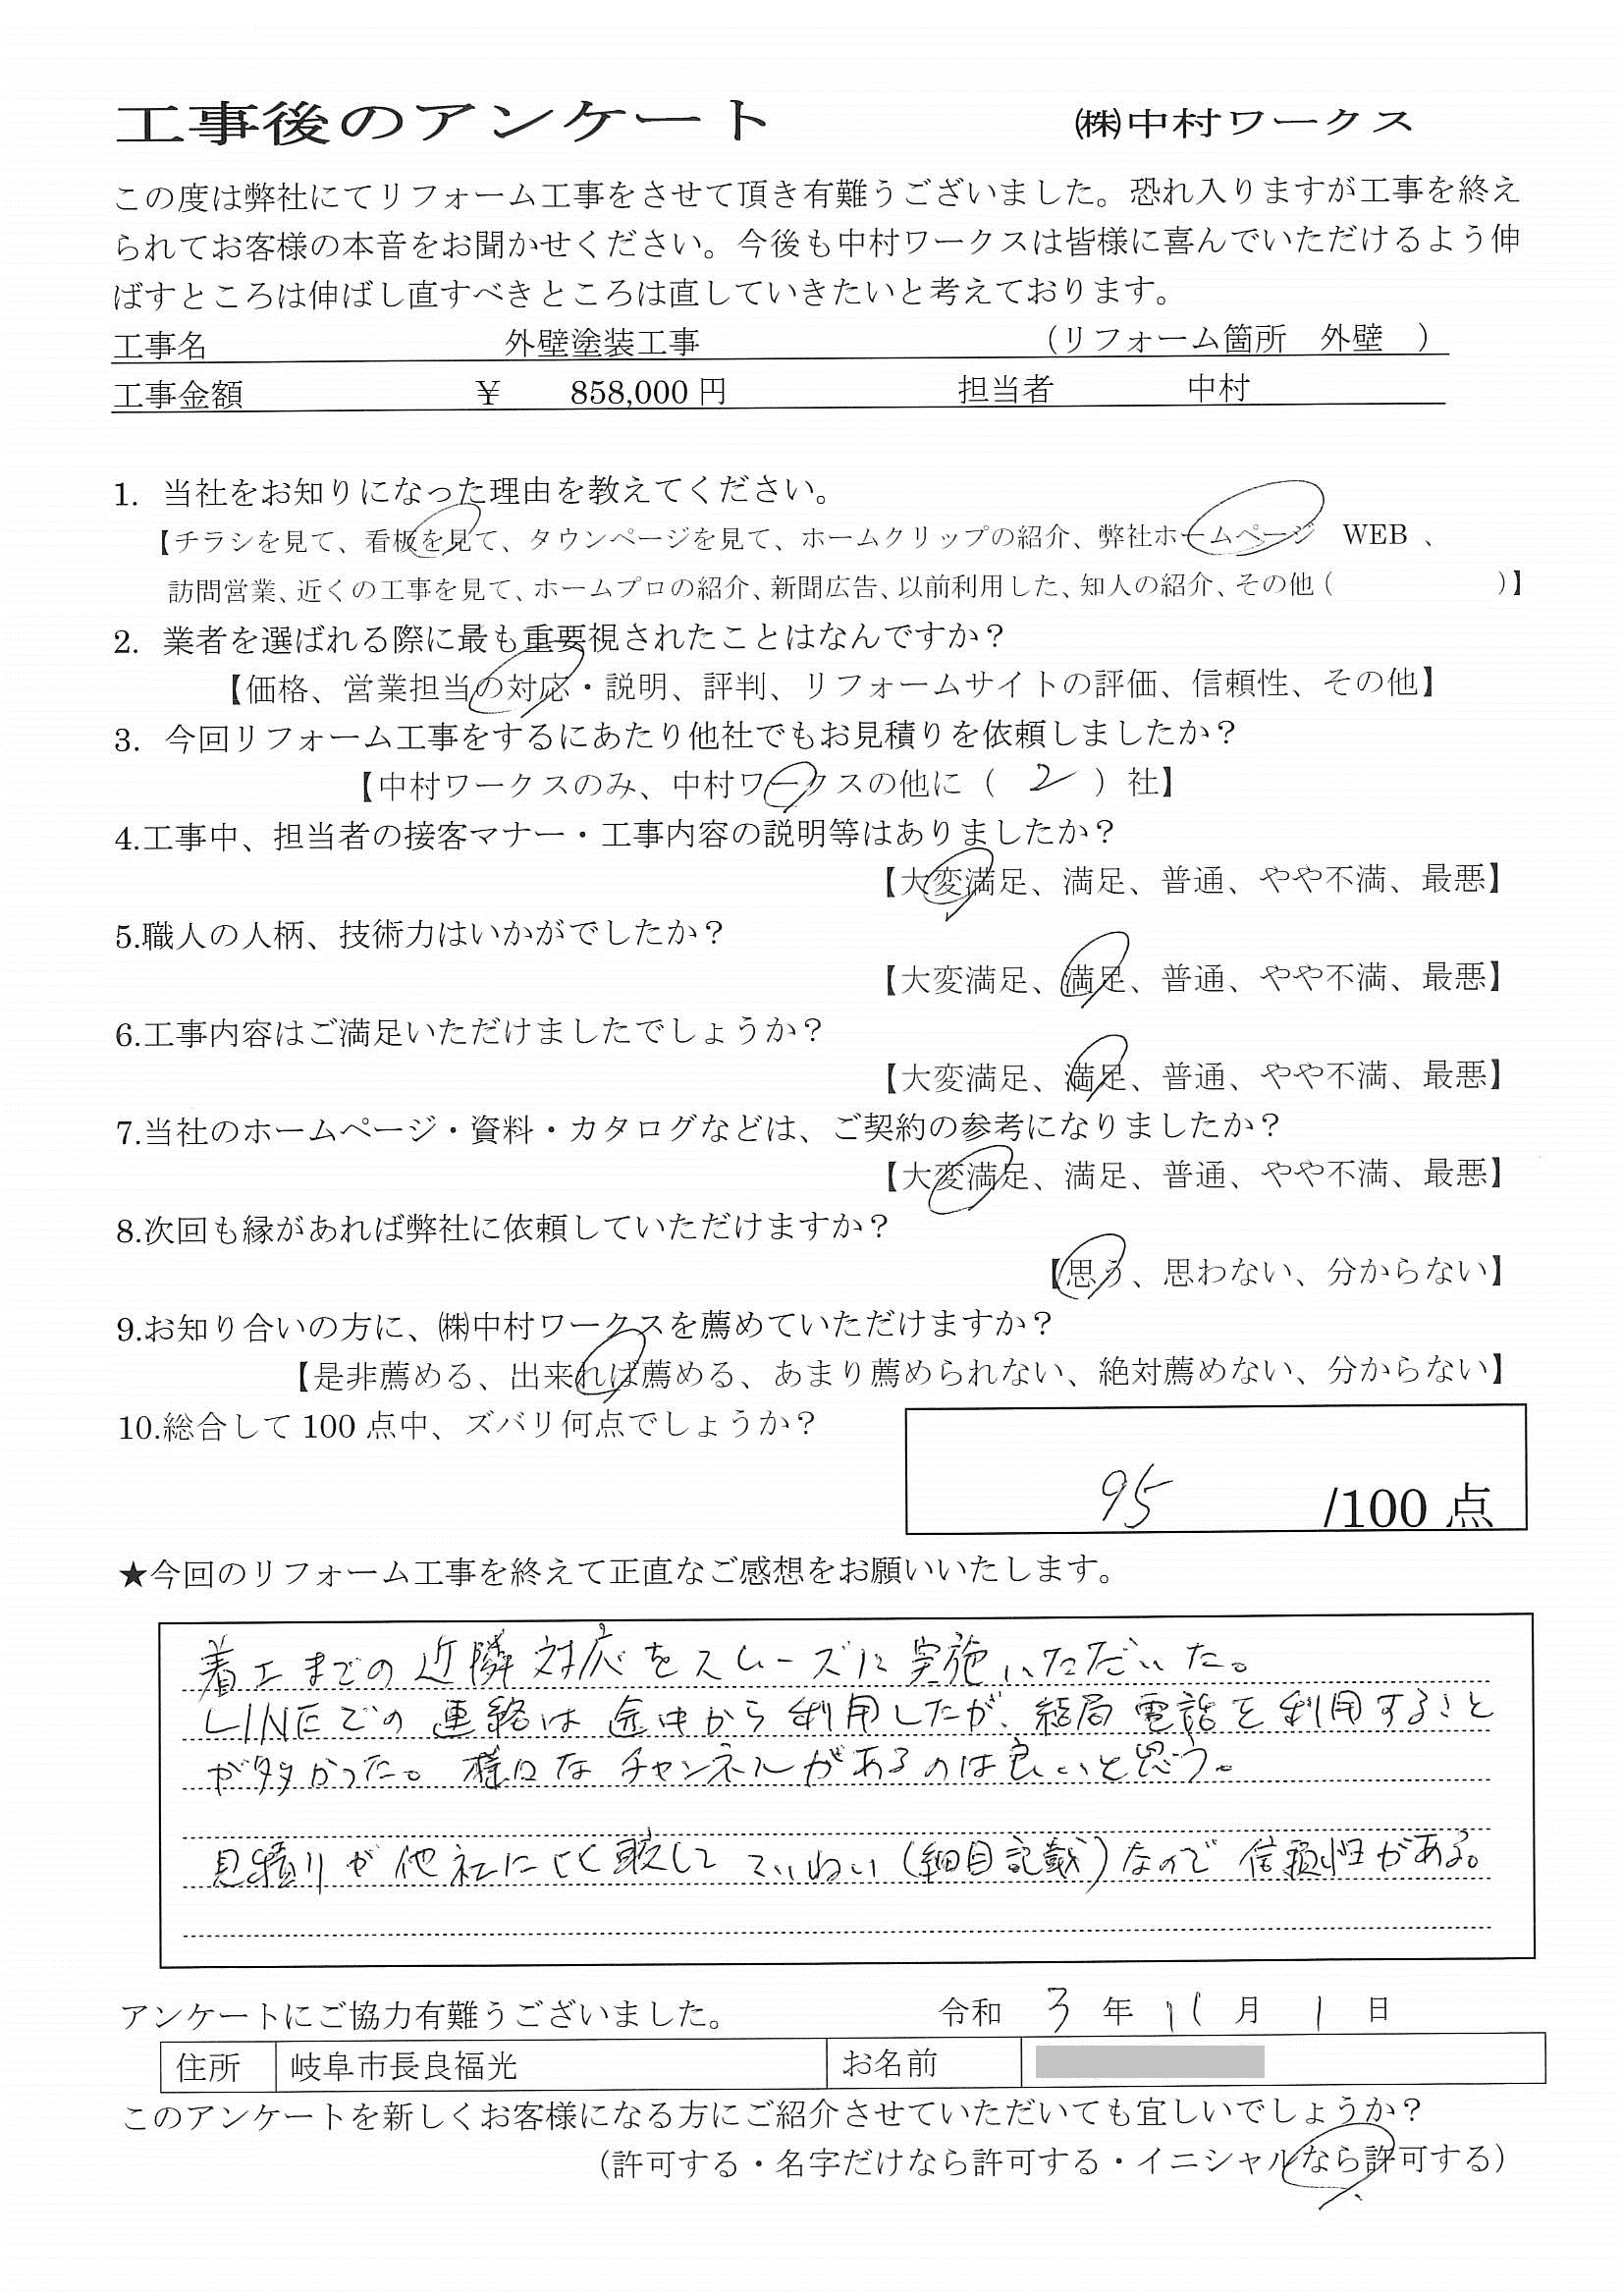 工事後のアンケート ㈱中村ワークス
この度は弊社にてリフォーム工事をさせて頂き有難うございました。恐れ入りますが工事を終え
られてお客様の本音をお聞かせください。今後も中村ワークスは皆様に喜んでいただけるよう伸
ばすところは伸ばし直すべきところは直していきたいと考えております。
工事名 外壁塗装工事 （リフォーム箇所 外壁 ）
工事金額 ￥ 858,000 円 担当者 中村
1. 当社をお知りになった理由を教えてください。
【チラシを見て、看板を見て、タウンページを見て、ホームクリップの紹介、弊社ホームページ WEB 、
訪問営業、近くの工事を見て、ホームプロの紹介、新聞広告、以前利用した、知人の紹介、その他（ ）】
2. 業者を選ばれる際に最も重要視されたことはなんですか？
【価格、営業担当の対応・説明、評判、リフォームサイトの評価、信頼性、その他】
3. 今回リフォーム工事をするにあたり他社でもお見積りを依頼しましたか？
【中村ワークスのみ、中村ワークスの他に（ 2 ）社】
4.工事中、担当者の接客マナー・工事内容の説明等はありましたか？
【大変満足、満足、普通、やや不満、最悪】
5.職人の人柄、技術力はいかがでしたか？
【大変満足、満足、普通、やや不満、最悪】
6.工事内容はご満足いただけましたでしょうか？
【大変満足、満足、普通、やや不満、最悪】
7.当社のホームページ・資料・カタログなどは、ご契約の参考になりましたか？
【大変満足、満足、普通、やや不満、最悪】
8.次回も縁があれば弊社に依頼していただけますか？
【思う、思わない、分からない】
9.お知り合いの方に、㈱中村ワークスを薦めていただけますか？
【是非薦める、出来れば薦める、あまり薦められない、絶対薦めない、分からない】
10.総合して 100 点中、ズバリ何点でしょうか？
95 /100 点
★今回のリフォーム工事を終えて正直なご感想をお願いいたします。
着工までの近隣対応をスムーズに実施いただいた。
LINEでの連絡は途中から利用したが、結局電話を利用すること
が多かった。様々なチャンネルがあるのは良いと思う。
見積りが他社に比較してていねい（細目記載）なので信頼性がある。
アンケートにご協力有難うございました。 令和 3 年 11 月 1 日
住所 岐阜市長良福光 お名前
このアンケートを新しくお客様になる方にご紹介させていただいても宜しいでしょうか？
（許可する・名字だけなら許可する・イニシャルなら許可する）